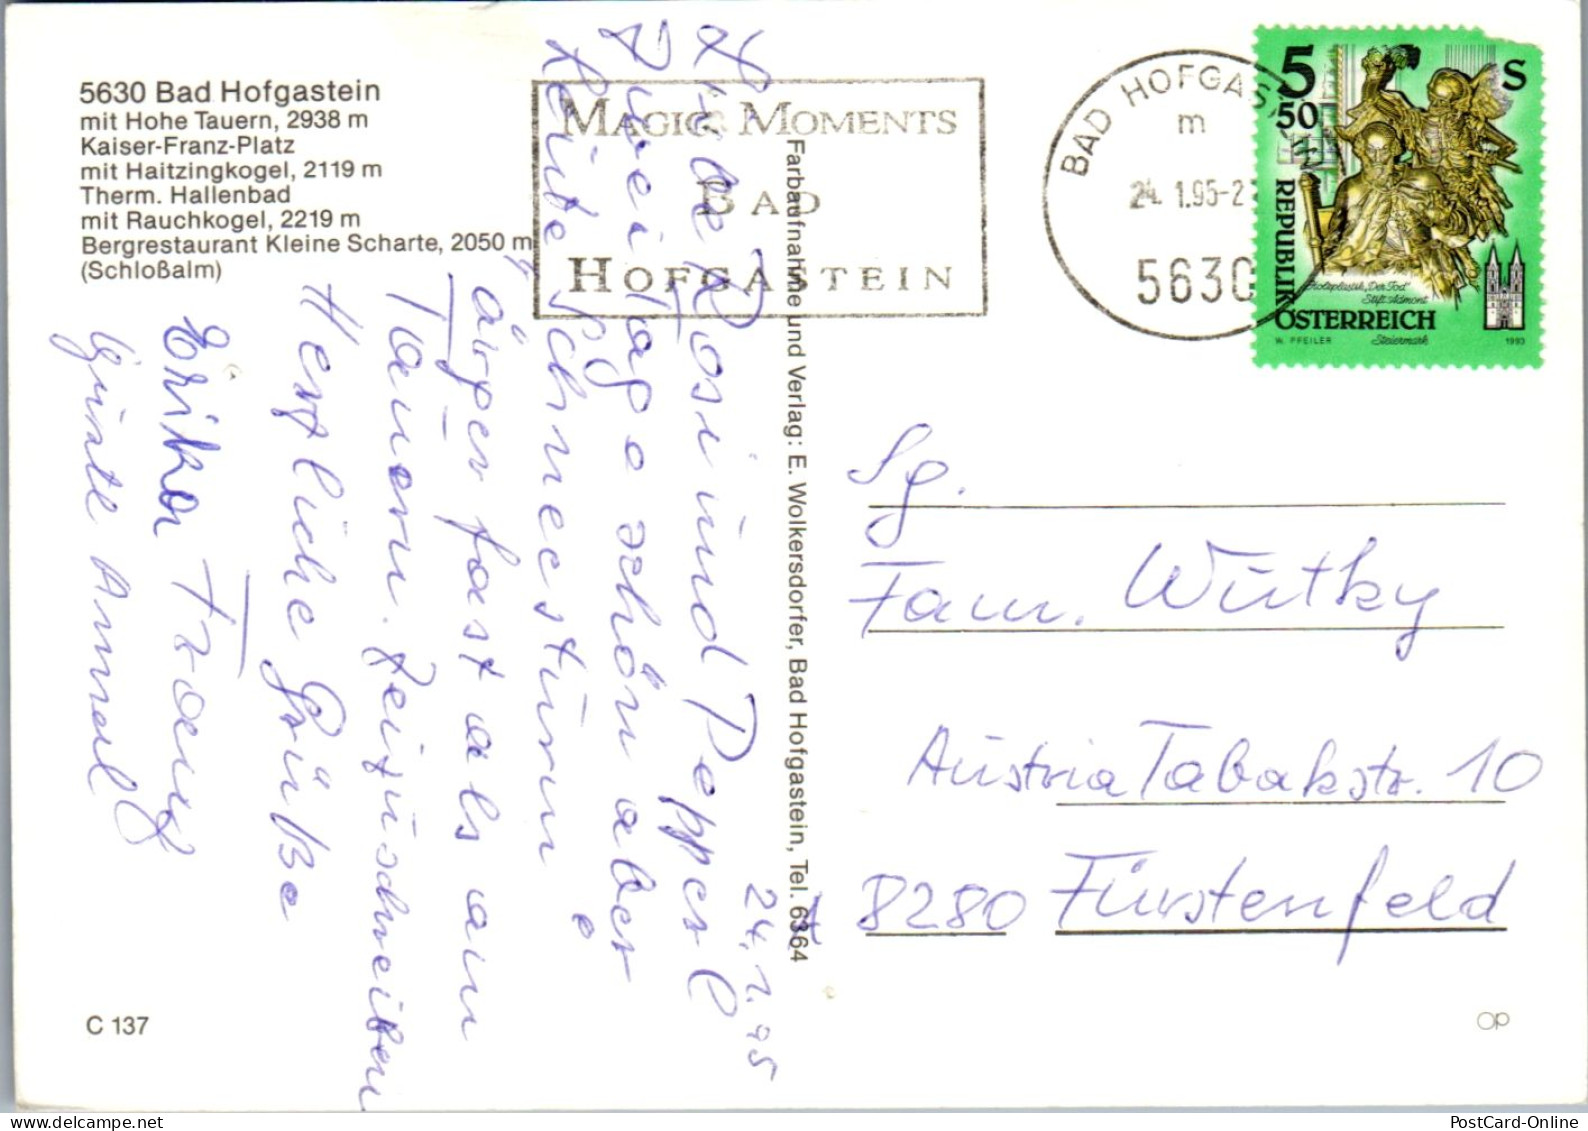 5630 Bad Hofgastein
mit Hohe Tauern, 2938 m
Kaiser-Franz-Platz
mit Haitzingkogel, 2119 m
Therm. Hallenbad
mit Rauchkogel, 2219 m
Bergrestaurant Kleine Scharte, 2050 m
(Schloßalm)
MAGIC MOMENTS
BAD
HOFGASTEIN
BAD HOFGAS
m
24. 1.95-2
5630
5 50 S
REPUBLIK
Holzplastik, "Der Tod"
Stift Admont
ÖSTERREICH
W. PFEILER Steiermark 1993
24.1.95
Liebe Rosi und Pepperl
Zwei Tage schön aber
heute Schneesturm
ärger fast als am
Tauern. Zeitzuschreiben
Herzliche Grüße
Erika Franz
Farbaufnahme und Verlag: E. Wolkersdorfer, Bad Hofgastein, Tel. 6364
Sg.
Fam. Wutky
Austria Tabakstr. 10
A 8280 Fürstenfeld
C 137
PostCard-Online